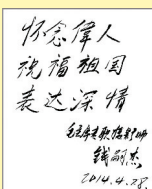 怀念偉人
祝福祖国
表达深情
毛主席专职摄影师
钱嗣杰
2014.4.28.